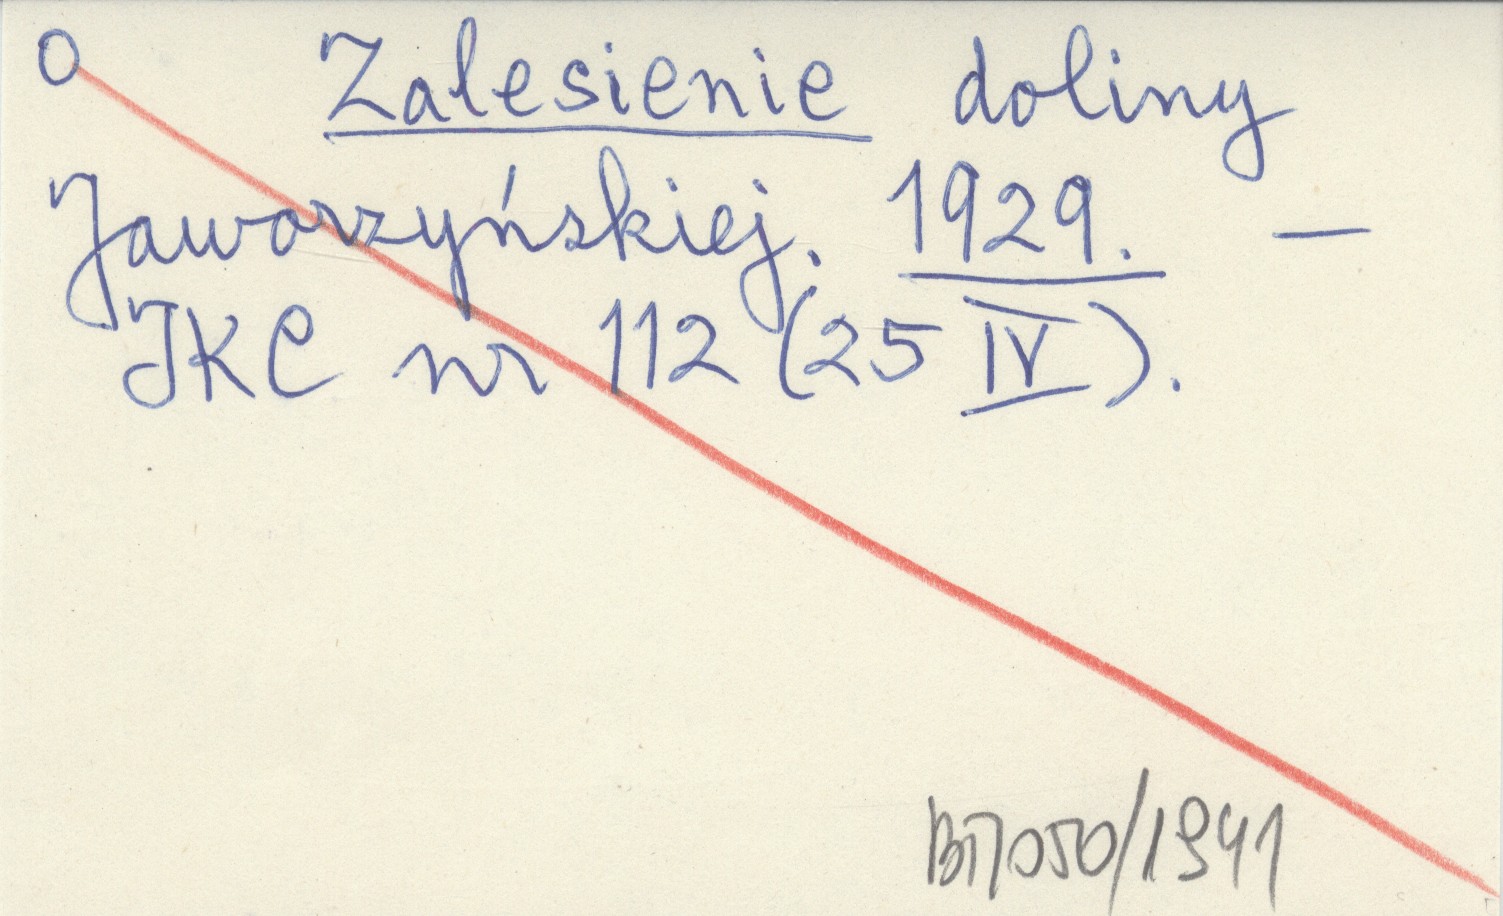 O Zalesienie doliny
Jaworzyńskiej. 1929. —
JKC nr 112 (25 IV).